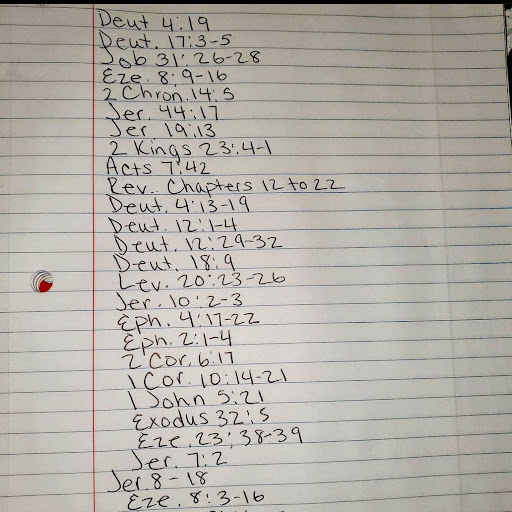 Deut 4:19
Deut. 17:3-5
Job 31:26-28
Eze. 8:9-16
2 Chron. 14:5
Jer. 44:17
Jer. 19:13
2 Kings 23:4-1
Acts 7:42
Rev. Chapters 12 to 22
Deut. 4:13-19
Deut. 12:1-4
Deut. 12:29-32
Deut. 18:9
Lev. 20:23-26
Jer. 10:2-3
Eph. 4:17-22
Eph. 2:1-4
2 Cor. 6:17
1 Cor. 10:14-21
1 John 5:21
Exodus 32:5
Eze. 23:38-39
Jer. 7:2
Jer. 8-18
Eze. 8:3-16